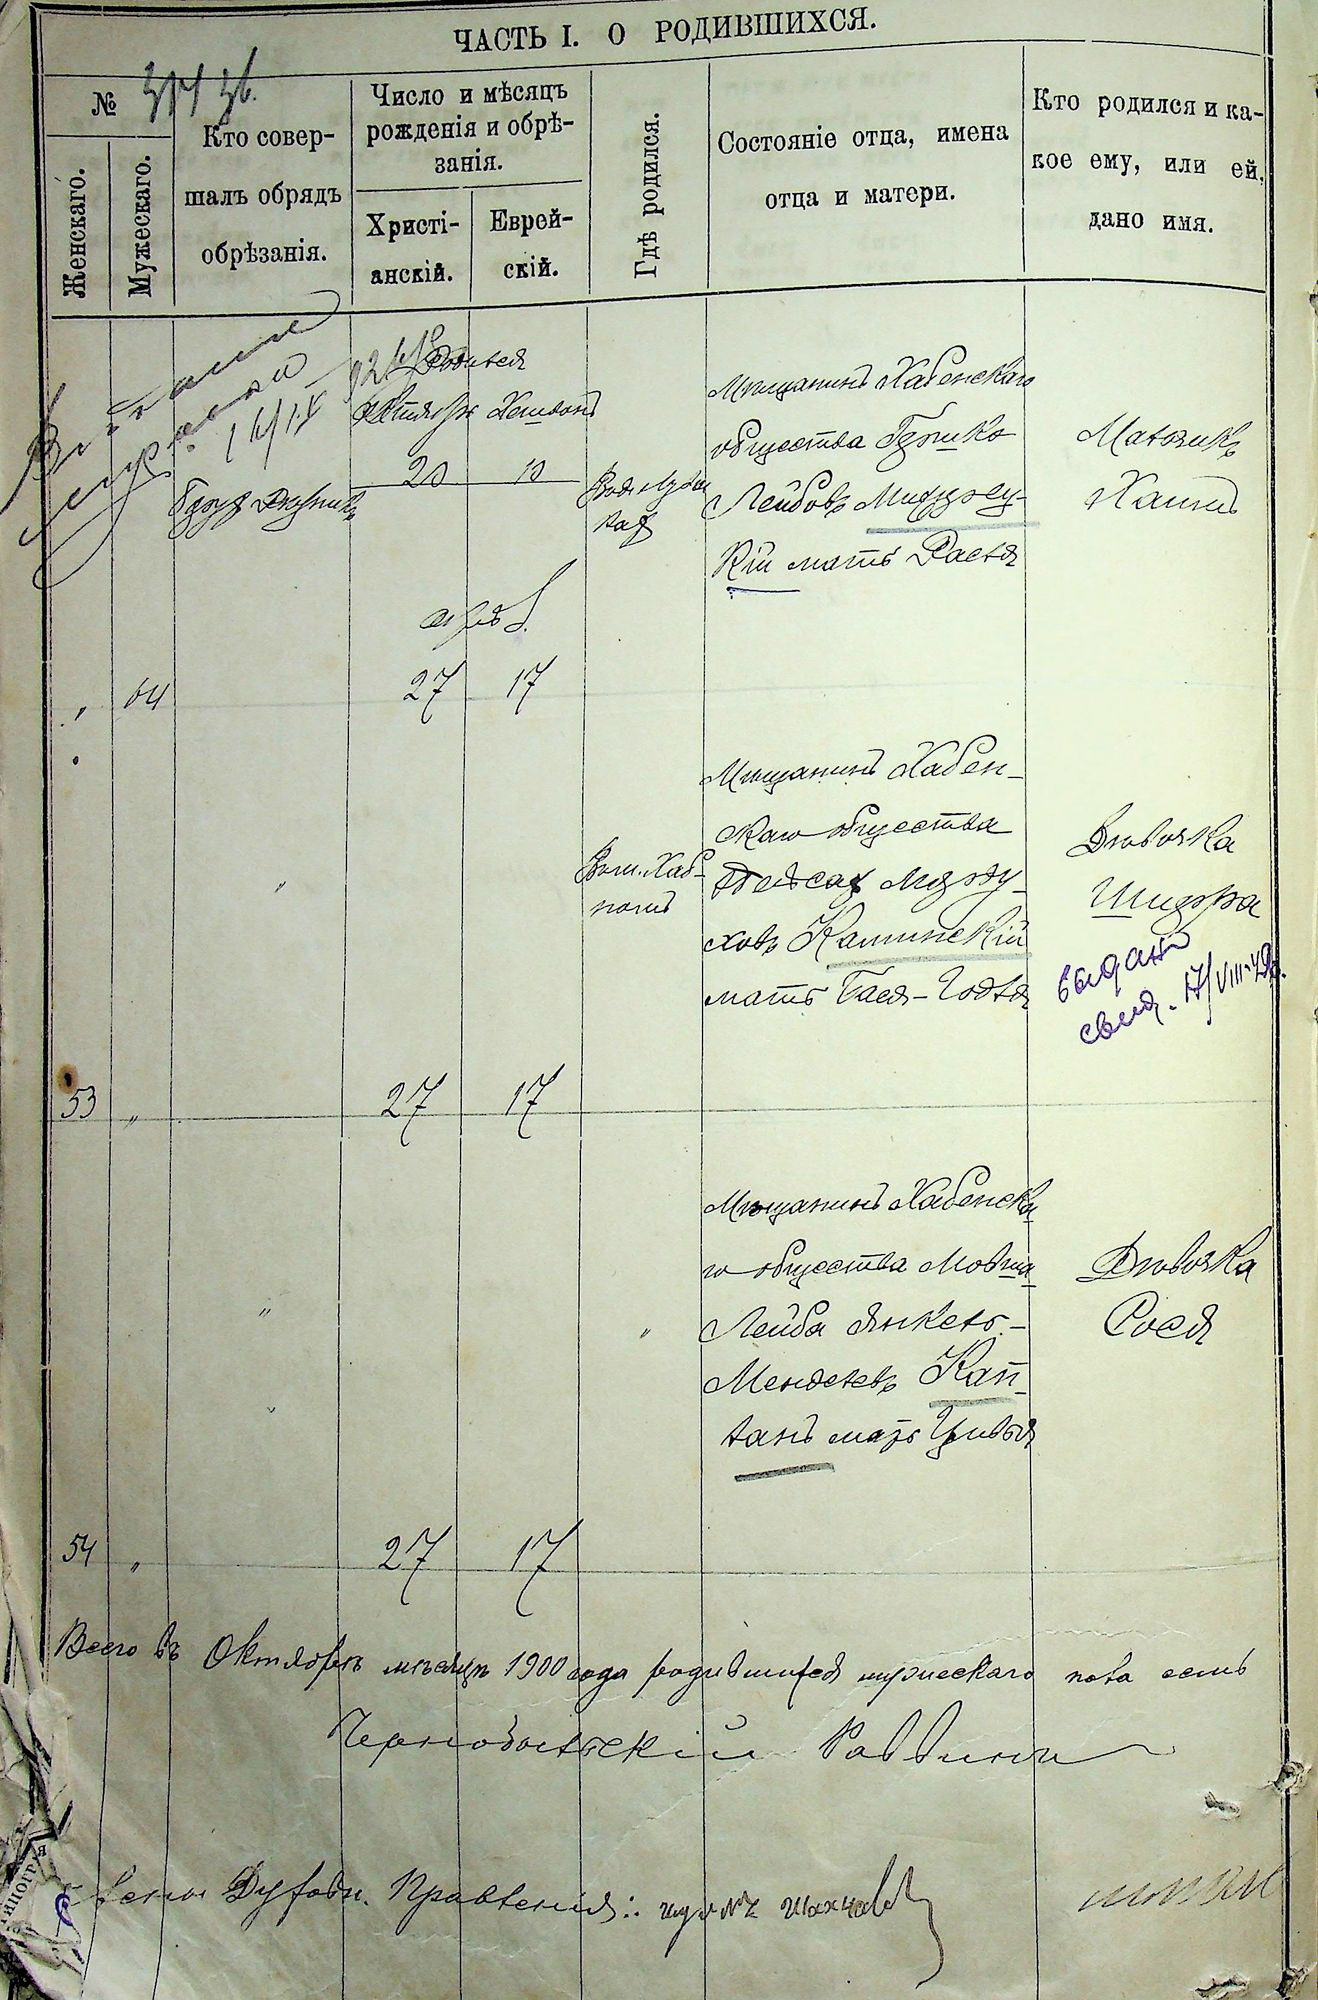 ЧАСТЬ I. О РОДИВШИХСЯ.
№
Женскаго.
Мужескаго.
Кто совер-
шалъ обрядъ
обрѣзанія.
Число и мѣсяцъ
рожденія и обрѣ-
занія.
Христі-
анскій.
Еврей-
скій.
Гдѣ родился.
Состояніе отца, имена
отца и матери.
Кто родился и ка-
кое ему, или ей,
дано имя.
Родился
Октябрь Хешванъ
20 10
Мѣщанинъ Хабенскаго
общества Гершко
Лейбовъ
кій мать Раселя
Мальчикъ
Хаимъ
обрѣз.
64 27 17
Мѣщанинъ Хабен-
скаго общества
Пейсах Морду-
ховъ Каминскій
мать Бася-Годля
Дѣвочка
Шифра
выдано
свид. 17/VIII-49г.
53 " 27 17
Мѣщанинъ Хабенска-
го общества Мовша
Лейба Янкель-
Менделевъ Кап-
ланъ мать Цивья
Дѣвочка
Рося
54 " 27 17
Всего въ Октябрѣ мѣсяцѣ 1900 года родившихся мужескаго пола семь
Чернобыльскій Раввинъ
Члены Духовн. Правленія: